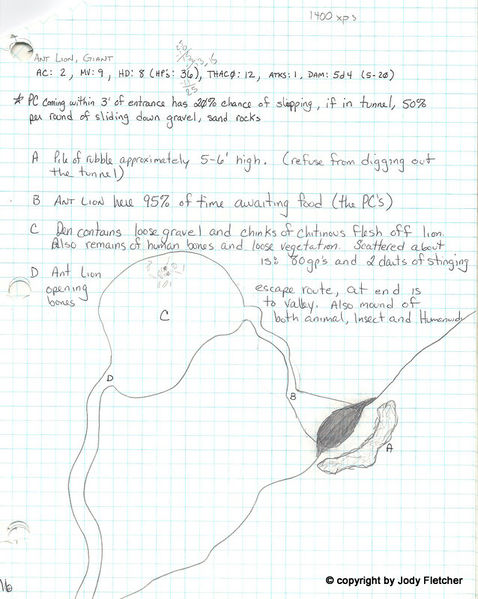 1400 xps
ANT LION, GIANT
AC: 2, MV: 9, HD: 8 (HP's: 36), THAC0: 12, ATKS: 1, DAM: 5d4 (5-20)
25
* PC coming within 3' of entrance has 20% chance of slipping, if in tunnel, 50%
per round of sliding down gravel, sand rocks
A Pile of rubble approximately 5-6' high. (refuse from digging out
the tunnel)
B ANT LION here 95% of time awaiting food (the PC's)
C Den contains loose gravel and chinks of chitinous flesh off lion.
Also remains of human bones and loose vegetation. Scattered about
is: 80gp's and 2 darts of stinging
D Ant Lion escape route, at end is
opening to valley. Also mound of
bones both animal, Insect and Humanoids
C
D
B
A
16
© copyright by Jody Fletcher